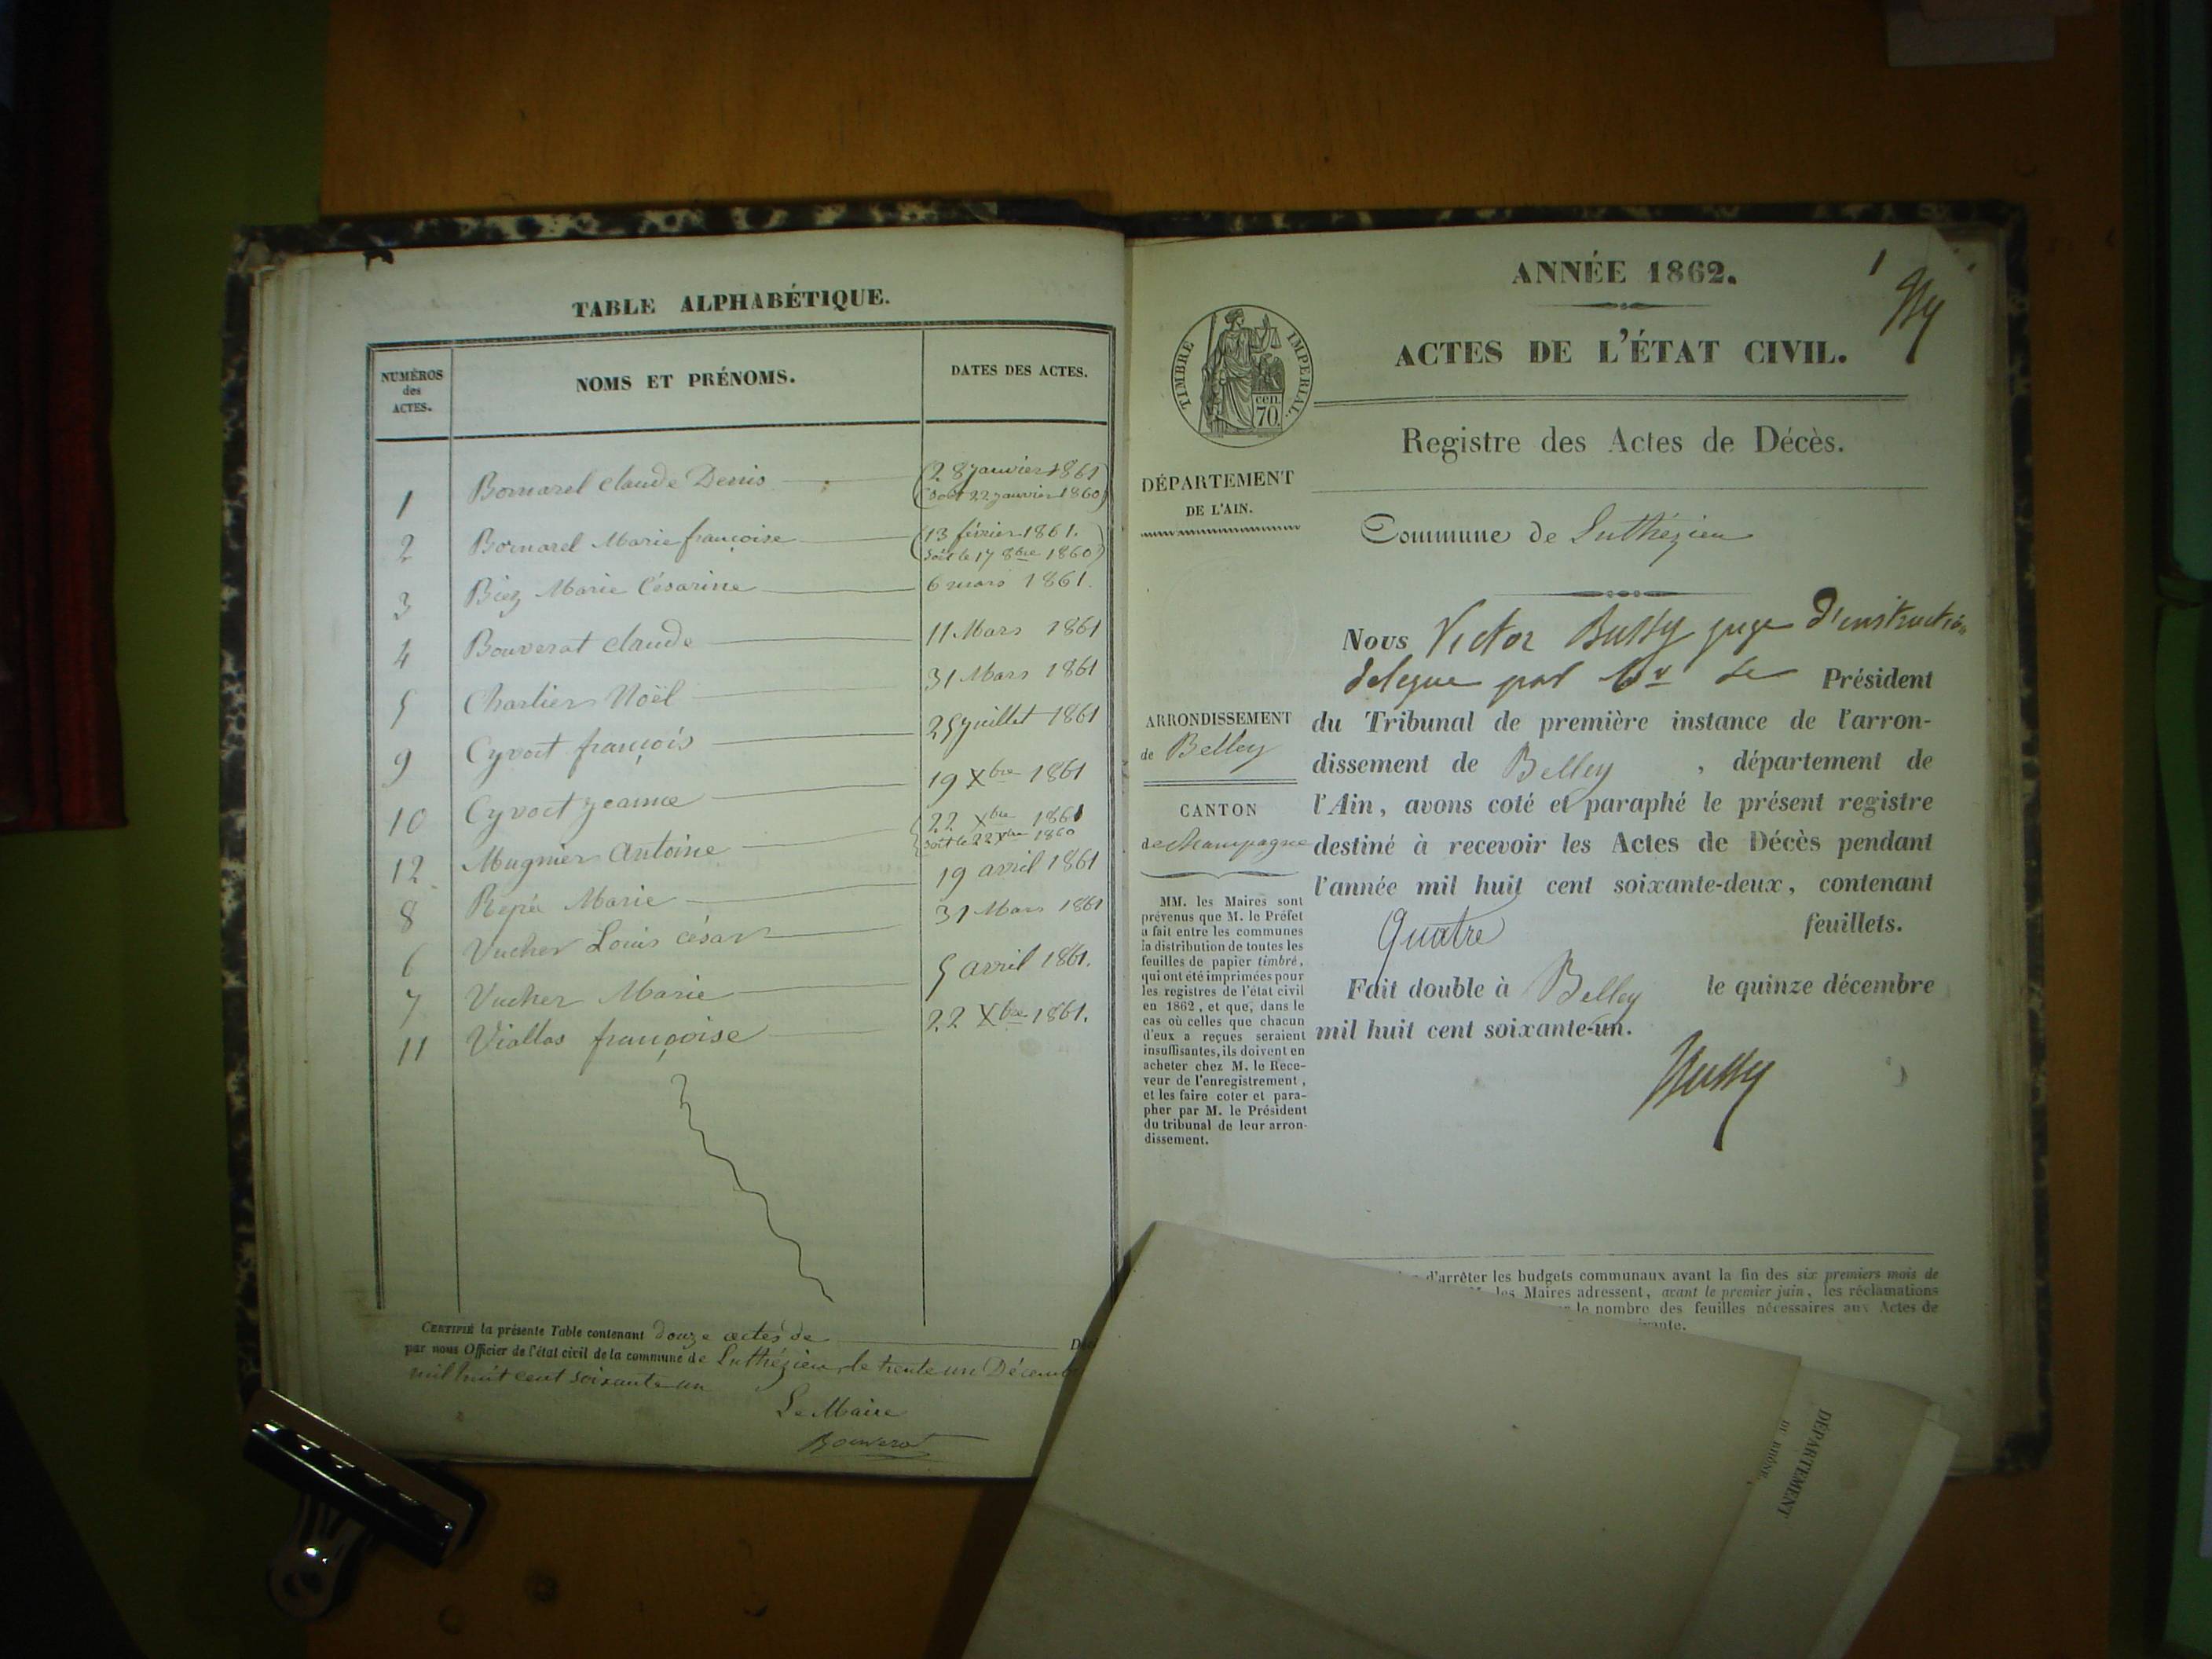 TABLE ALPHABÉTIQUE.
NUMÉROS des ACTES. NOMS ET PRÉNOMS. DATES DES ACTES.
1 Bornarel Claude Denis (28 janvier 1861
(soit 22 janvier 1860)
2 Bornarel Marie françoise (13 février 1861.)
(soit le 17 8bre 1860)
3 Biez Marie Césarine 6 mars 1861.
4 Bouverat claude 11 Mars 1861
5 Charlier Noël 31 Mars 1861
9 Cyvoct françois 25 juillet 1861
10 Cyvoct jeanne 19 Xbre 1861
12 Mugnier Antoine {22 Xbre 1861
soit le 22 Xbre 1860
8 Marie 19 avril 1861
6 Vucher Louis césar 31 Mars 1861
7 Vucher Marie 5 avril 1861.
11 Viallas françoise 22 Xbre 1861.
CERTIFIÉ la présente Table contenant douze actes de Déc
par nous Officier de l'état civil de la commune de Luthézieu, le trente un Décemb
mil huit cent soixante un
Le Maire
Bouverat
1
ANNÉE 1862.
TIMBRE IMPERIAL.
cen. 70.
ACTES DE L'ÉTAT CIVIL.
Registre des Actes de Décès.
DÉPARTEMENT
DE L'AIN.
Commune de Luthézieu
ARRONDISSEMENT
de Belley
CANTON
de Champagne
MM. les Maires sont
prévenus que M. le Préfet
a fait entre les communes
la distribution de toutes les
feuilles de papier timbré,
qui ont été imprimées pour
les registres de l'état civil
en 1862, et que, dans le
cas où celles que chacun
d'eux a reçues seraient
insuffisantes, ils doivent en
acheter chez M. le Rece-
veur de l'enregistrement,
et les faire coter et para-
pher par M. le Président
du tribunal de leur arron-
dissement.
Nous Victor Bussy juge d'instruction
délégué par Mr le Président
du Tribunal de première instance de l'arron-
dissement de Belley, département de
l'Ain, avons coté et paraphé le présent registre
destiné à recevoir les Actes de Décès pendant
l'année mil huit cent soixante-deux, contenant
Quatre feuillets.
Fait double à Belley le quinze décembre
mil huit cent soixante-un.
Bussy
d'arrêter les budgets communaux avant la fin des six premiers mois de
les Maires adressent, avant le premier juin, les réclamations
le nombre des feuilles nécessaires aux Actes de
DÉPARTEMENT
DU RHÔNE.